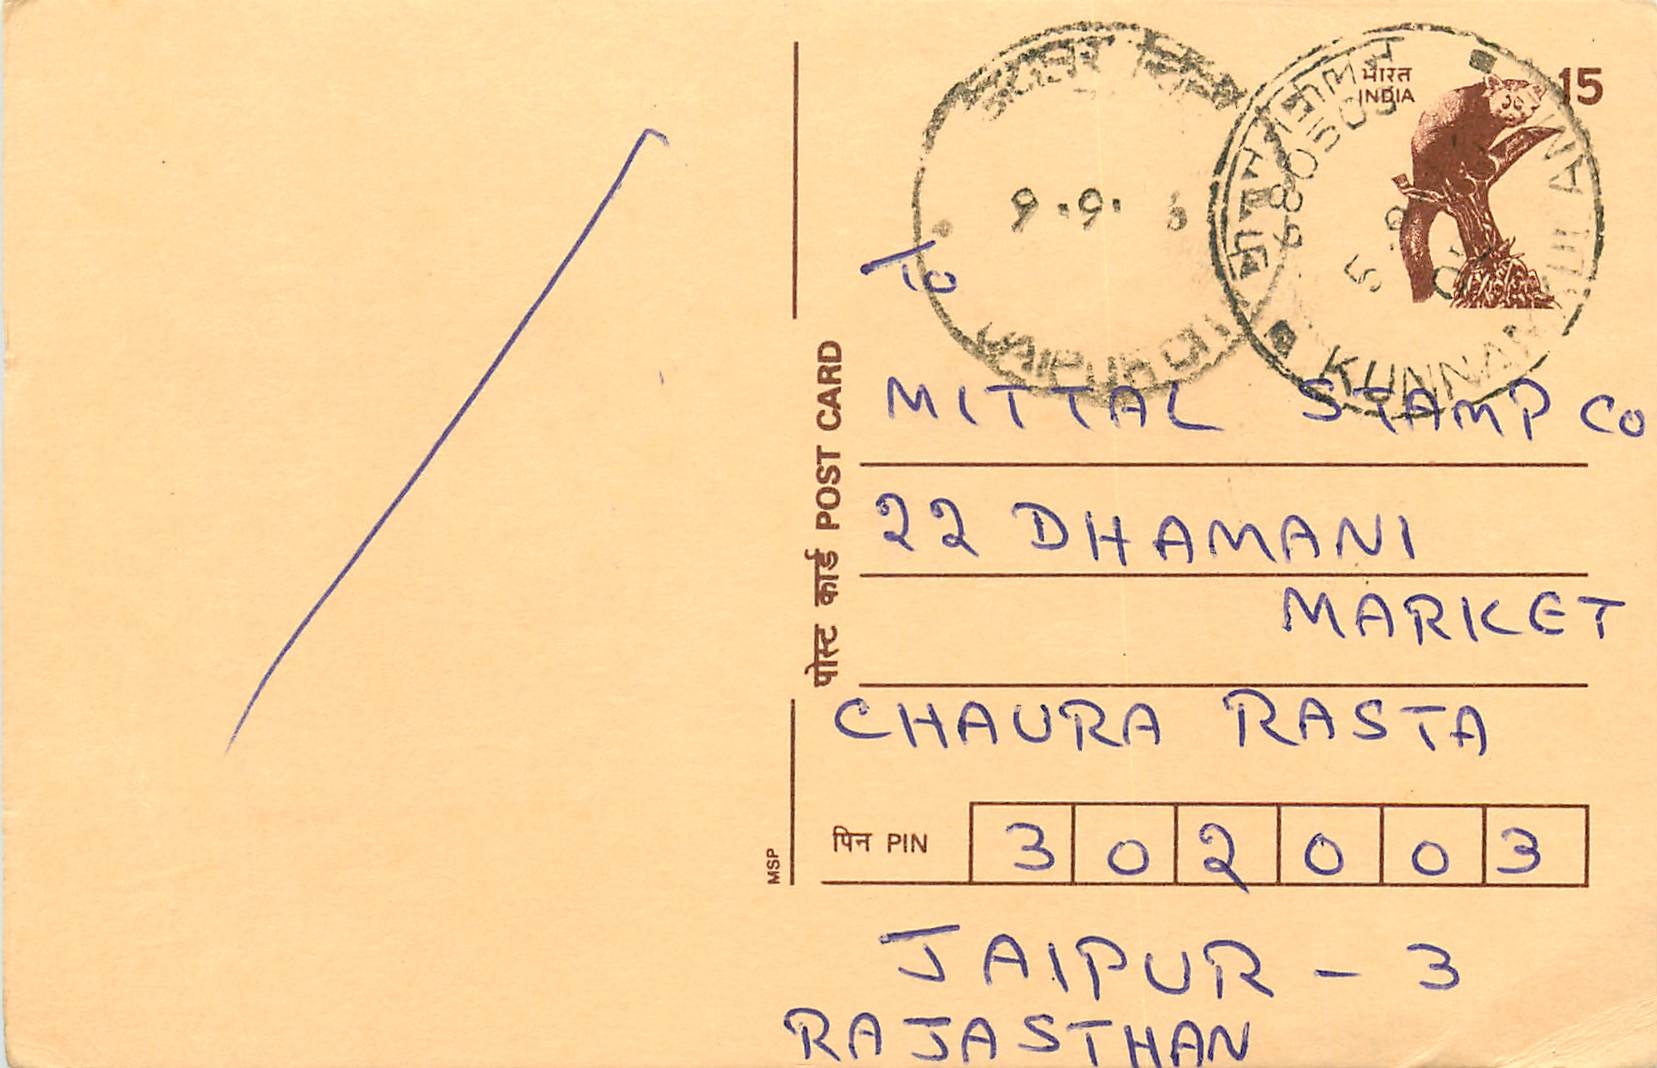 भारत
INDIA
15
680503
KUNNAMKULAM
5
9.9.
JAIPUR
To
MITTAL STAMP Co
22 DHAMANI
MARKET
CHAURA RASTA
पोस्ट कार्ड POST CARD
MSP
पिन PIN
3 0 2 0 0 3
JAIPUR - 3
RAJASTHAN